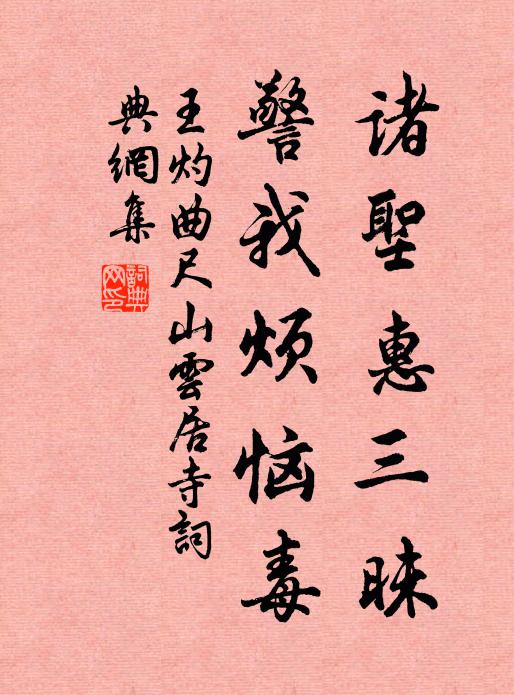 諸聖惠三昧
警我烦恼毒
王灼曲尺山雲居寺詞
典網集
詞典
网印